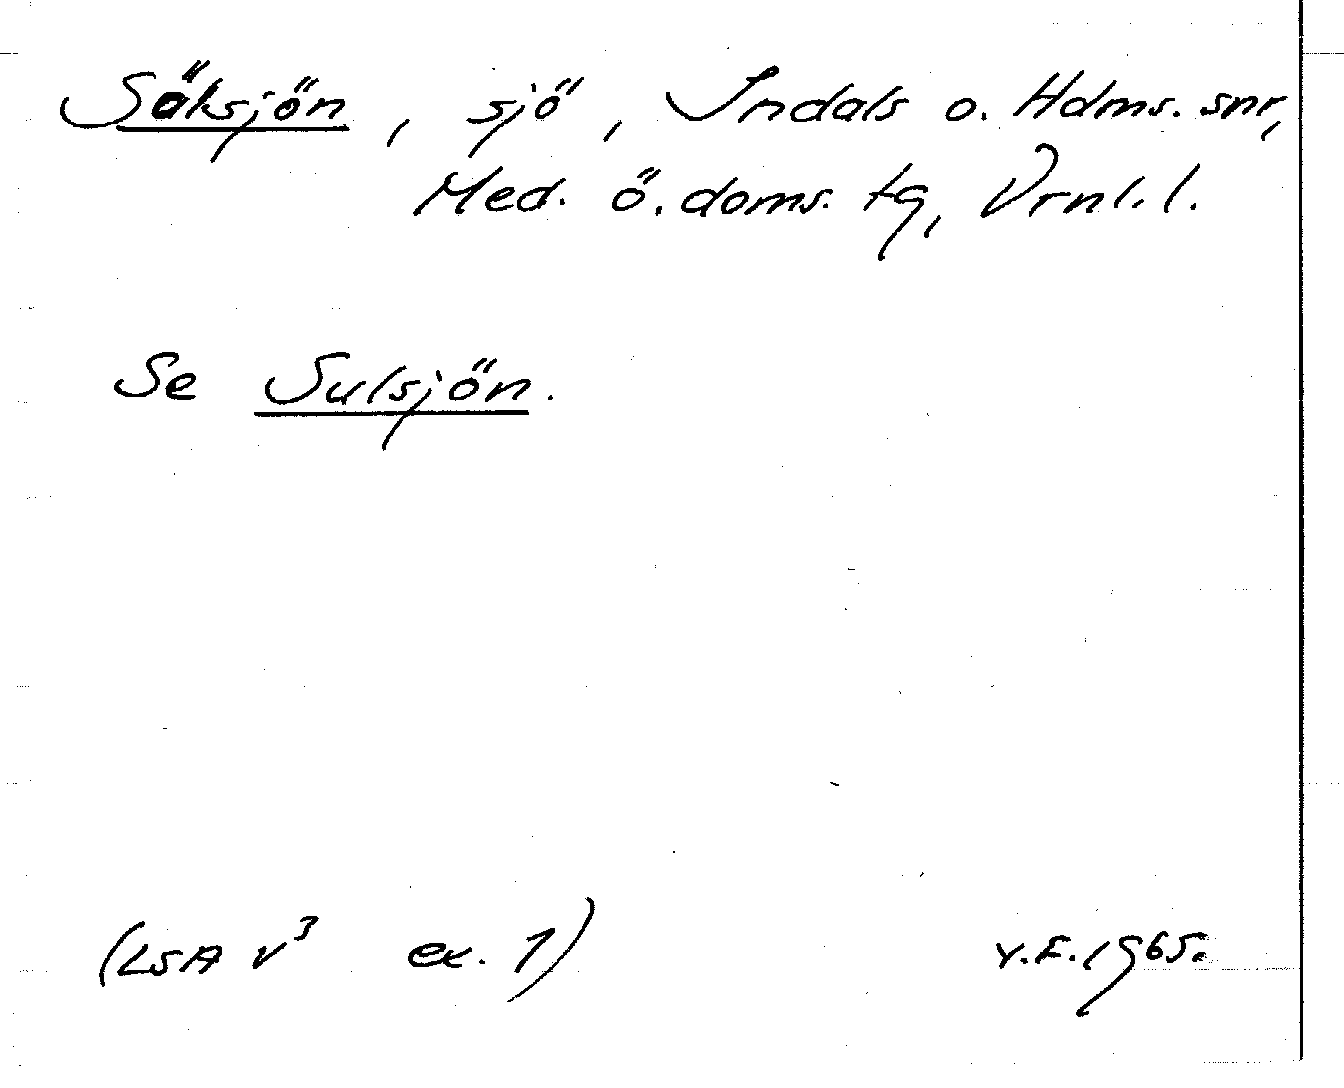 Säksjön, sjö, Indals o. Hdms. snr,
Med. ö. doms. tg, Vrnl. l.
Se Sulsjön.
(LSA v³ ex. 1) V.E. 1965.